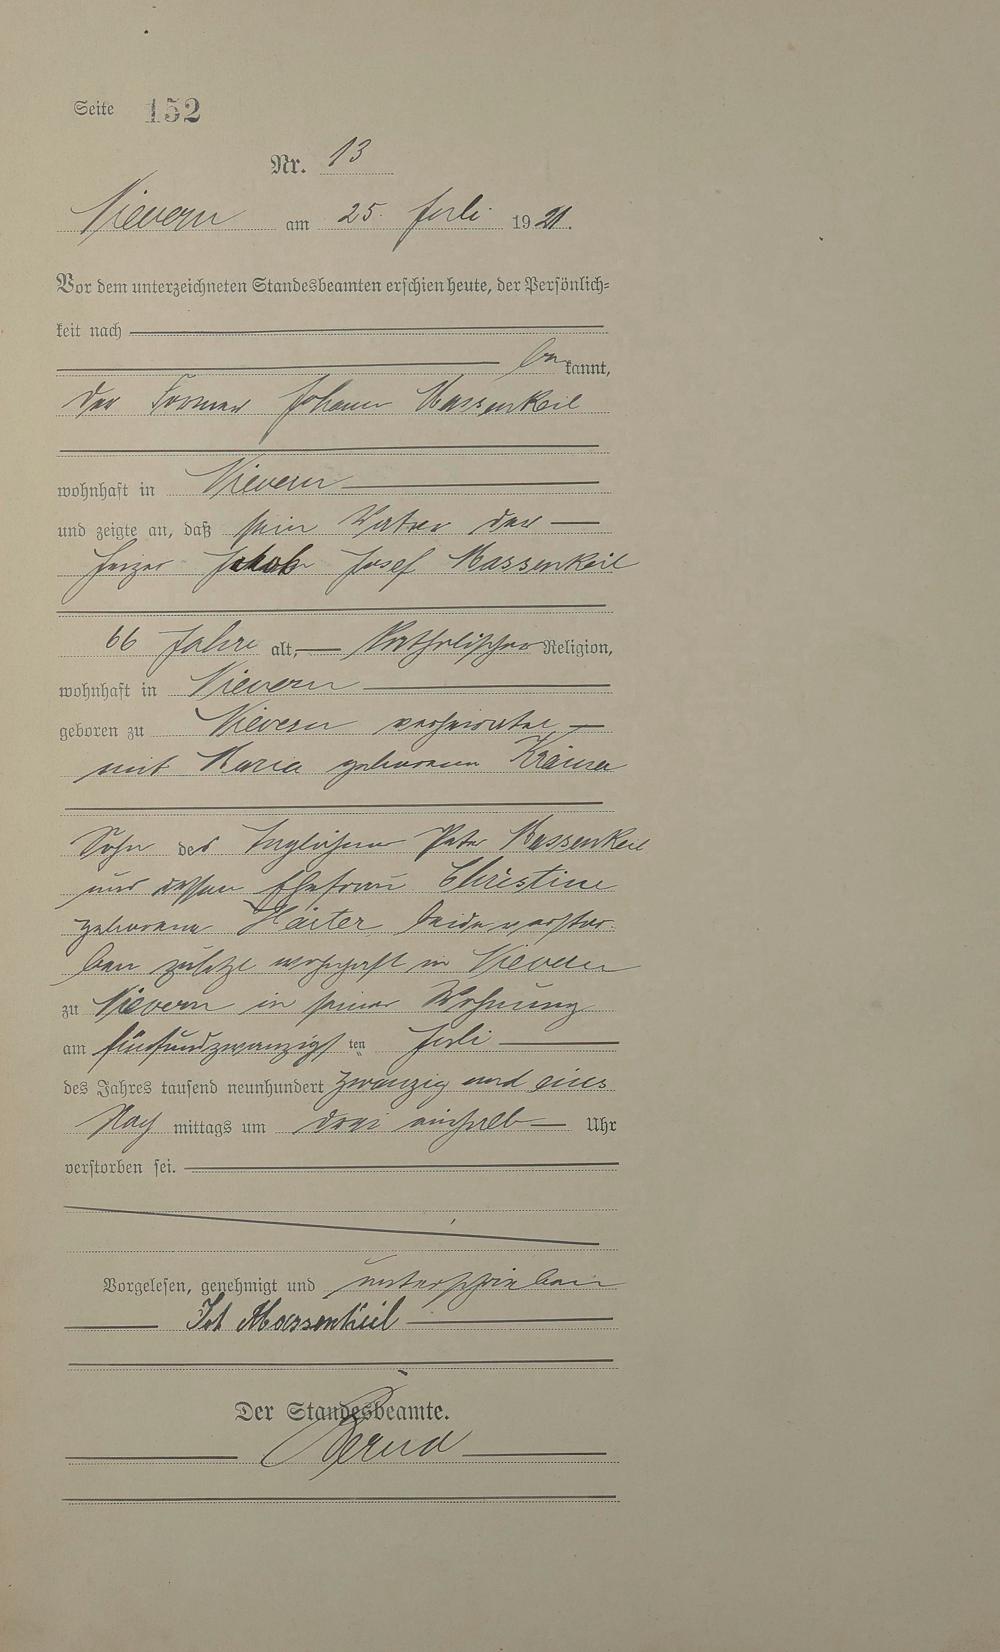 Seite 152
Nr. 13
Nievern am 25. Juli 1921.
Vor dem unterzeichneten Standesbeamten erschien heute, der Persönlich-
keit nach
bekannt,
der Former Johann Massenkeil
wohnhaft in Nievern
und zeigte an, daß sein Vater der
Heizer Jakob Josef Massenkeil
66 Jahre alt, katholischer Religion,
wohnhaft in Nievern
geboren zu Nievern verheiratet
mit Maria geborenen Krämer
Sohn des Taglöhner Peter Massenkeil
und dessen Ehefrau Christine
geborene beide verstor-
ben zuletzt wohnhaft in Nievern
zu Nievern in seiner Wohnung
am fünfundzwanzigsten Juli
des Jahres tausend neunhundert zwanzig und eins
Nachmittags um drei einhalb Uhr
verstorben sei.
Vorgelesen, genehmigt und unterschrieben
Joh Massenkeil
Der Standesbeamte.